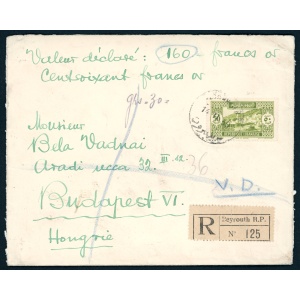 Valeur déclaré : 160 francs or
Centsoixant francs or
gr. 30.-
Monsieur
Bela Vadnai
Aradi ucca 32. III. 12.
36
Budapest VI.
Hongrie
V.D.
50
R
Beyrouth R.P.
N° 125